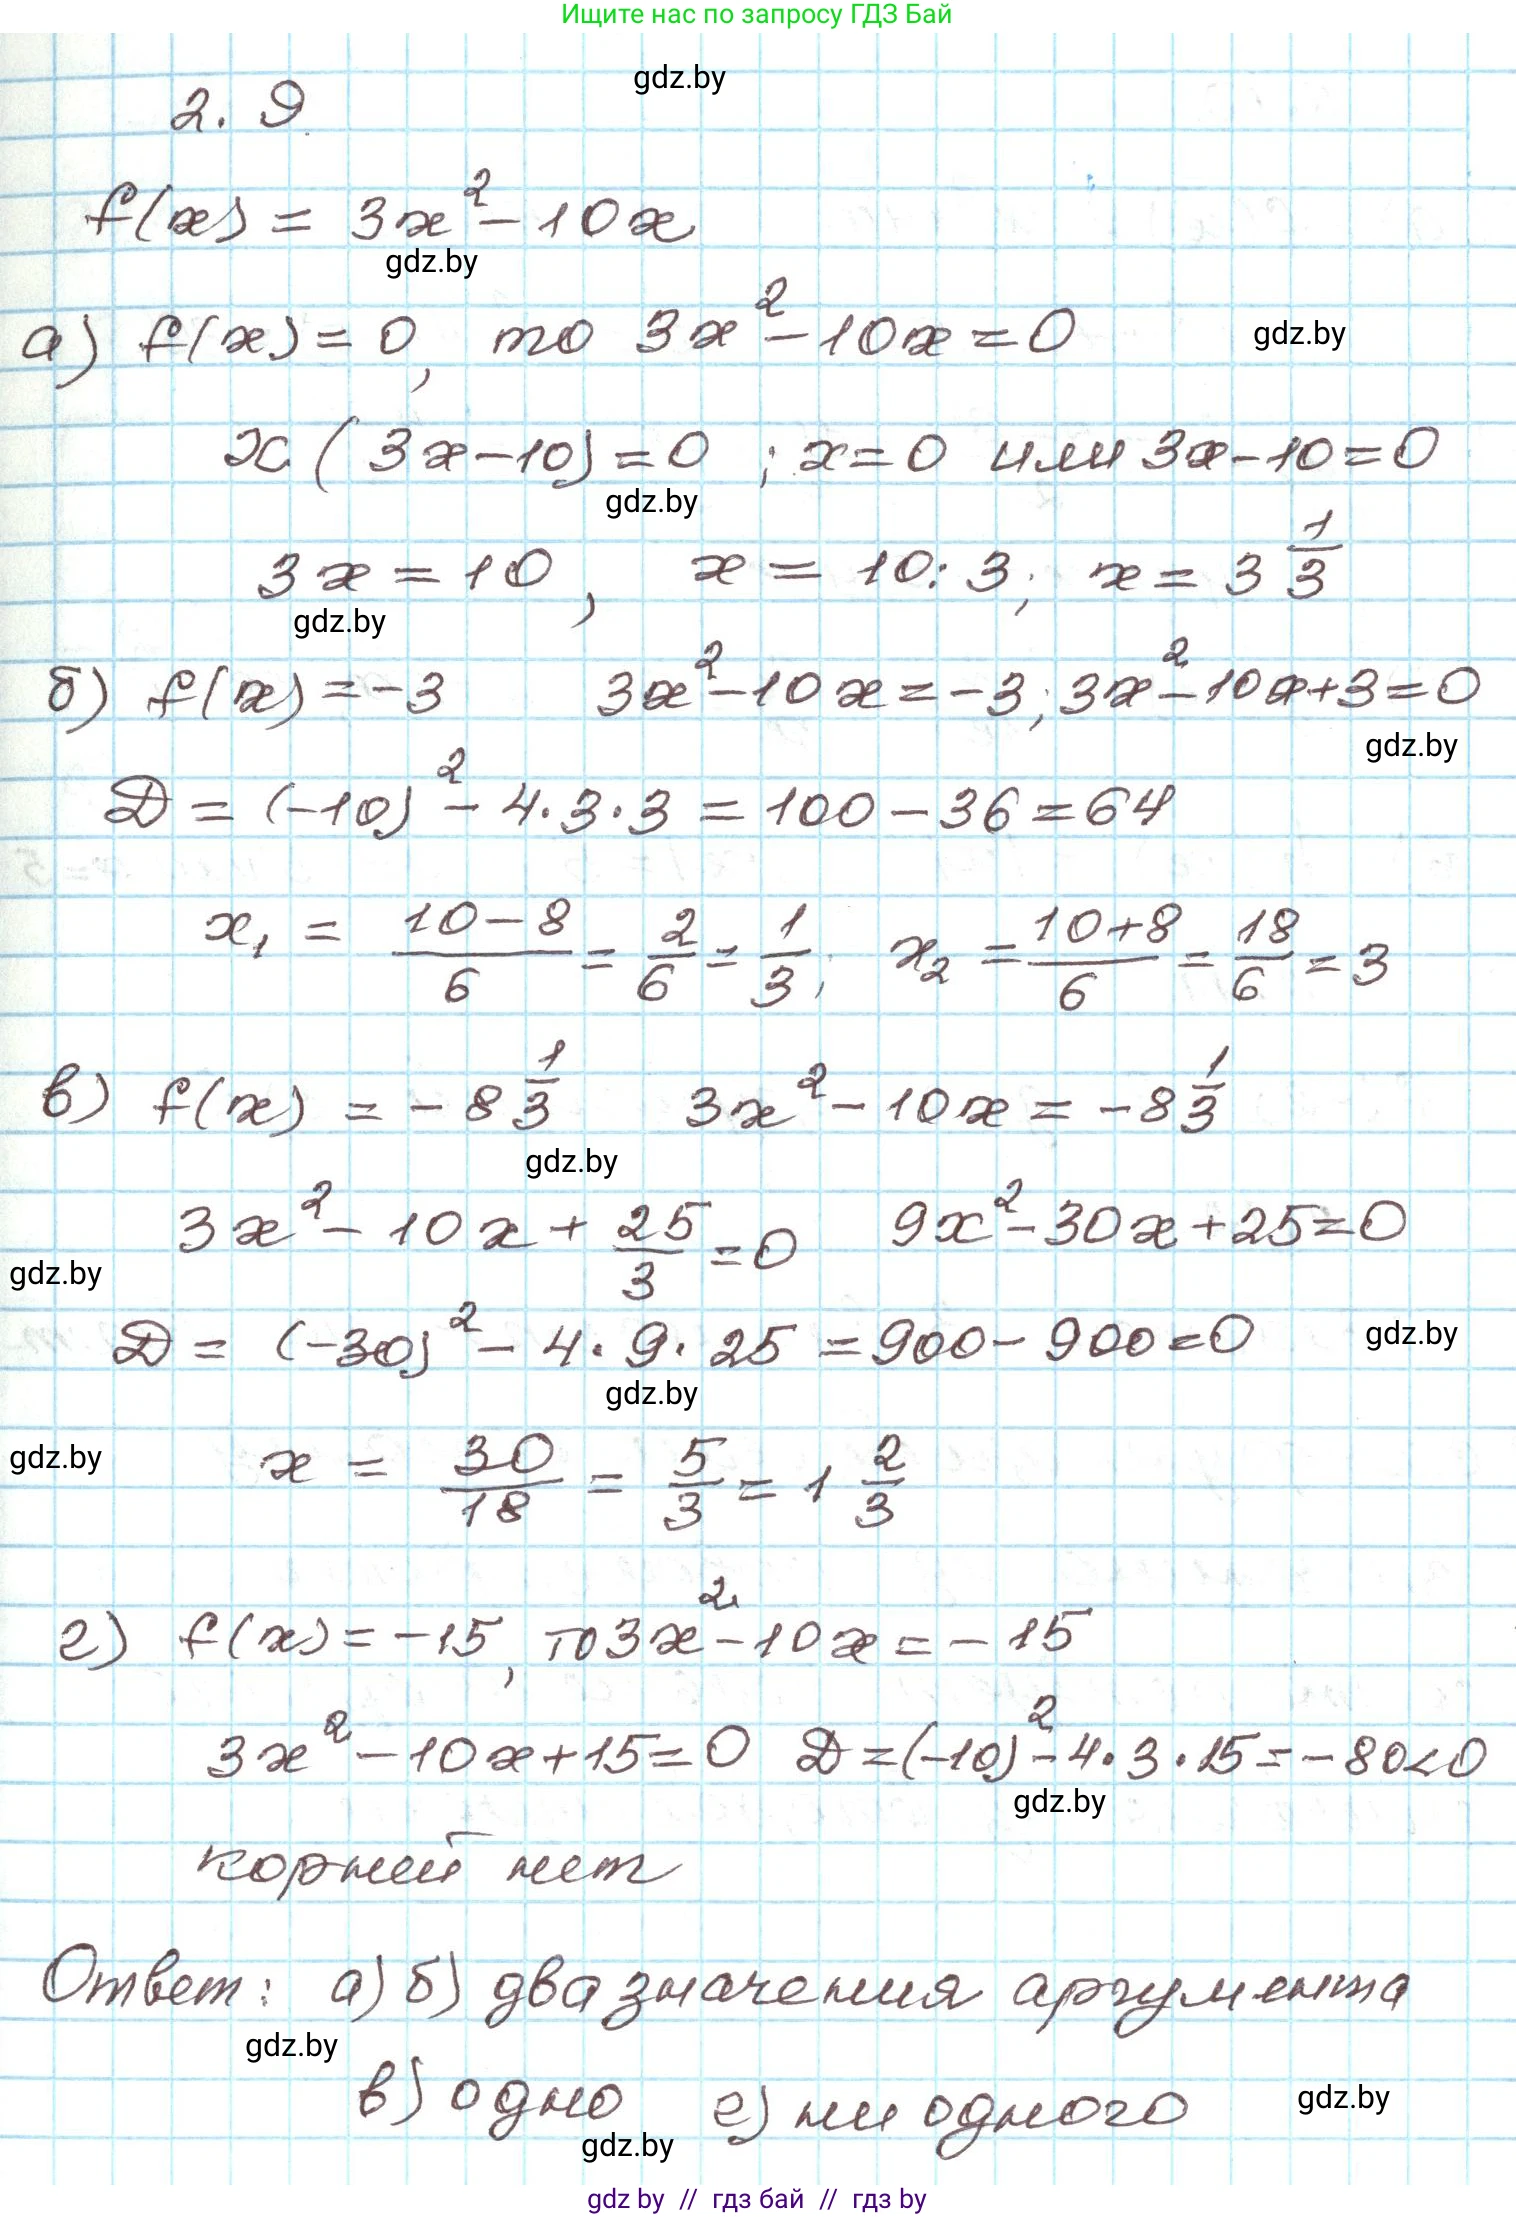 Ищите нас по запросу ГДЗ Бай
gdz.by
2.9
f(x) = 3x² - 10x
gdz.by
а) f(x) = 0, то 3x² - 10x = 0
gdz.by
x(3x - 10) = 0 ; x = 0 или 3x - 10 = 0
gdz.by
3x = 10, x = 10 : 3; x = 3 1/3
gdz.by
б) f(x) = -3 3x² - 10x = -3; 3x² - 10x + 3 = 0
gdz.by
D = (-10)² - 4·3·3 = 100 - 36 = 64
x₁ = (10 - 8)/6 = 2/6 = 1/3; x₂ = (10 + 8)/6 = 18/6 = 3
в) f(x) = -8 1/3 3x² - 10x = -8 1/3
gdz.by
3x² - 10x + 25/3 = 0 9x² - 30x + 25 = 0
gdz.by
D = (-30)² - 4·9·25 = 900 - 900 = 0
gdz.by
gdz.by
gdz.by
x = 30/18 = 5/3 = 1 2/3
г) f(x) = -15, то 3x² - 10x = -15
3x² - 10x + 15 = 0 D = (-10)² - 4·3·15 = -80 < 0
gdz.by
корней нет
Ответ: а) б) два значения аргумента
gdz.by
в) одно г) ни одного
gdz.by
gdz.by
gdz by // гдз бай // гдз by